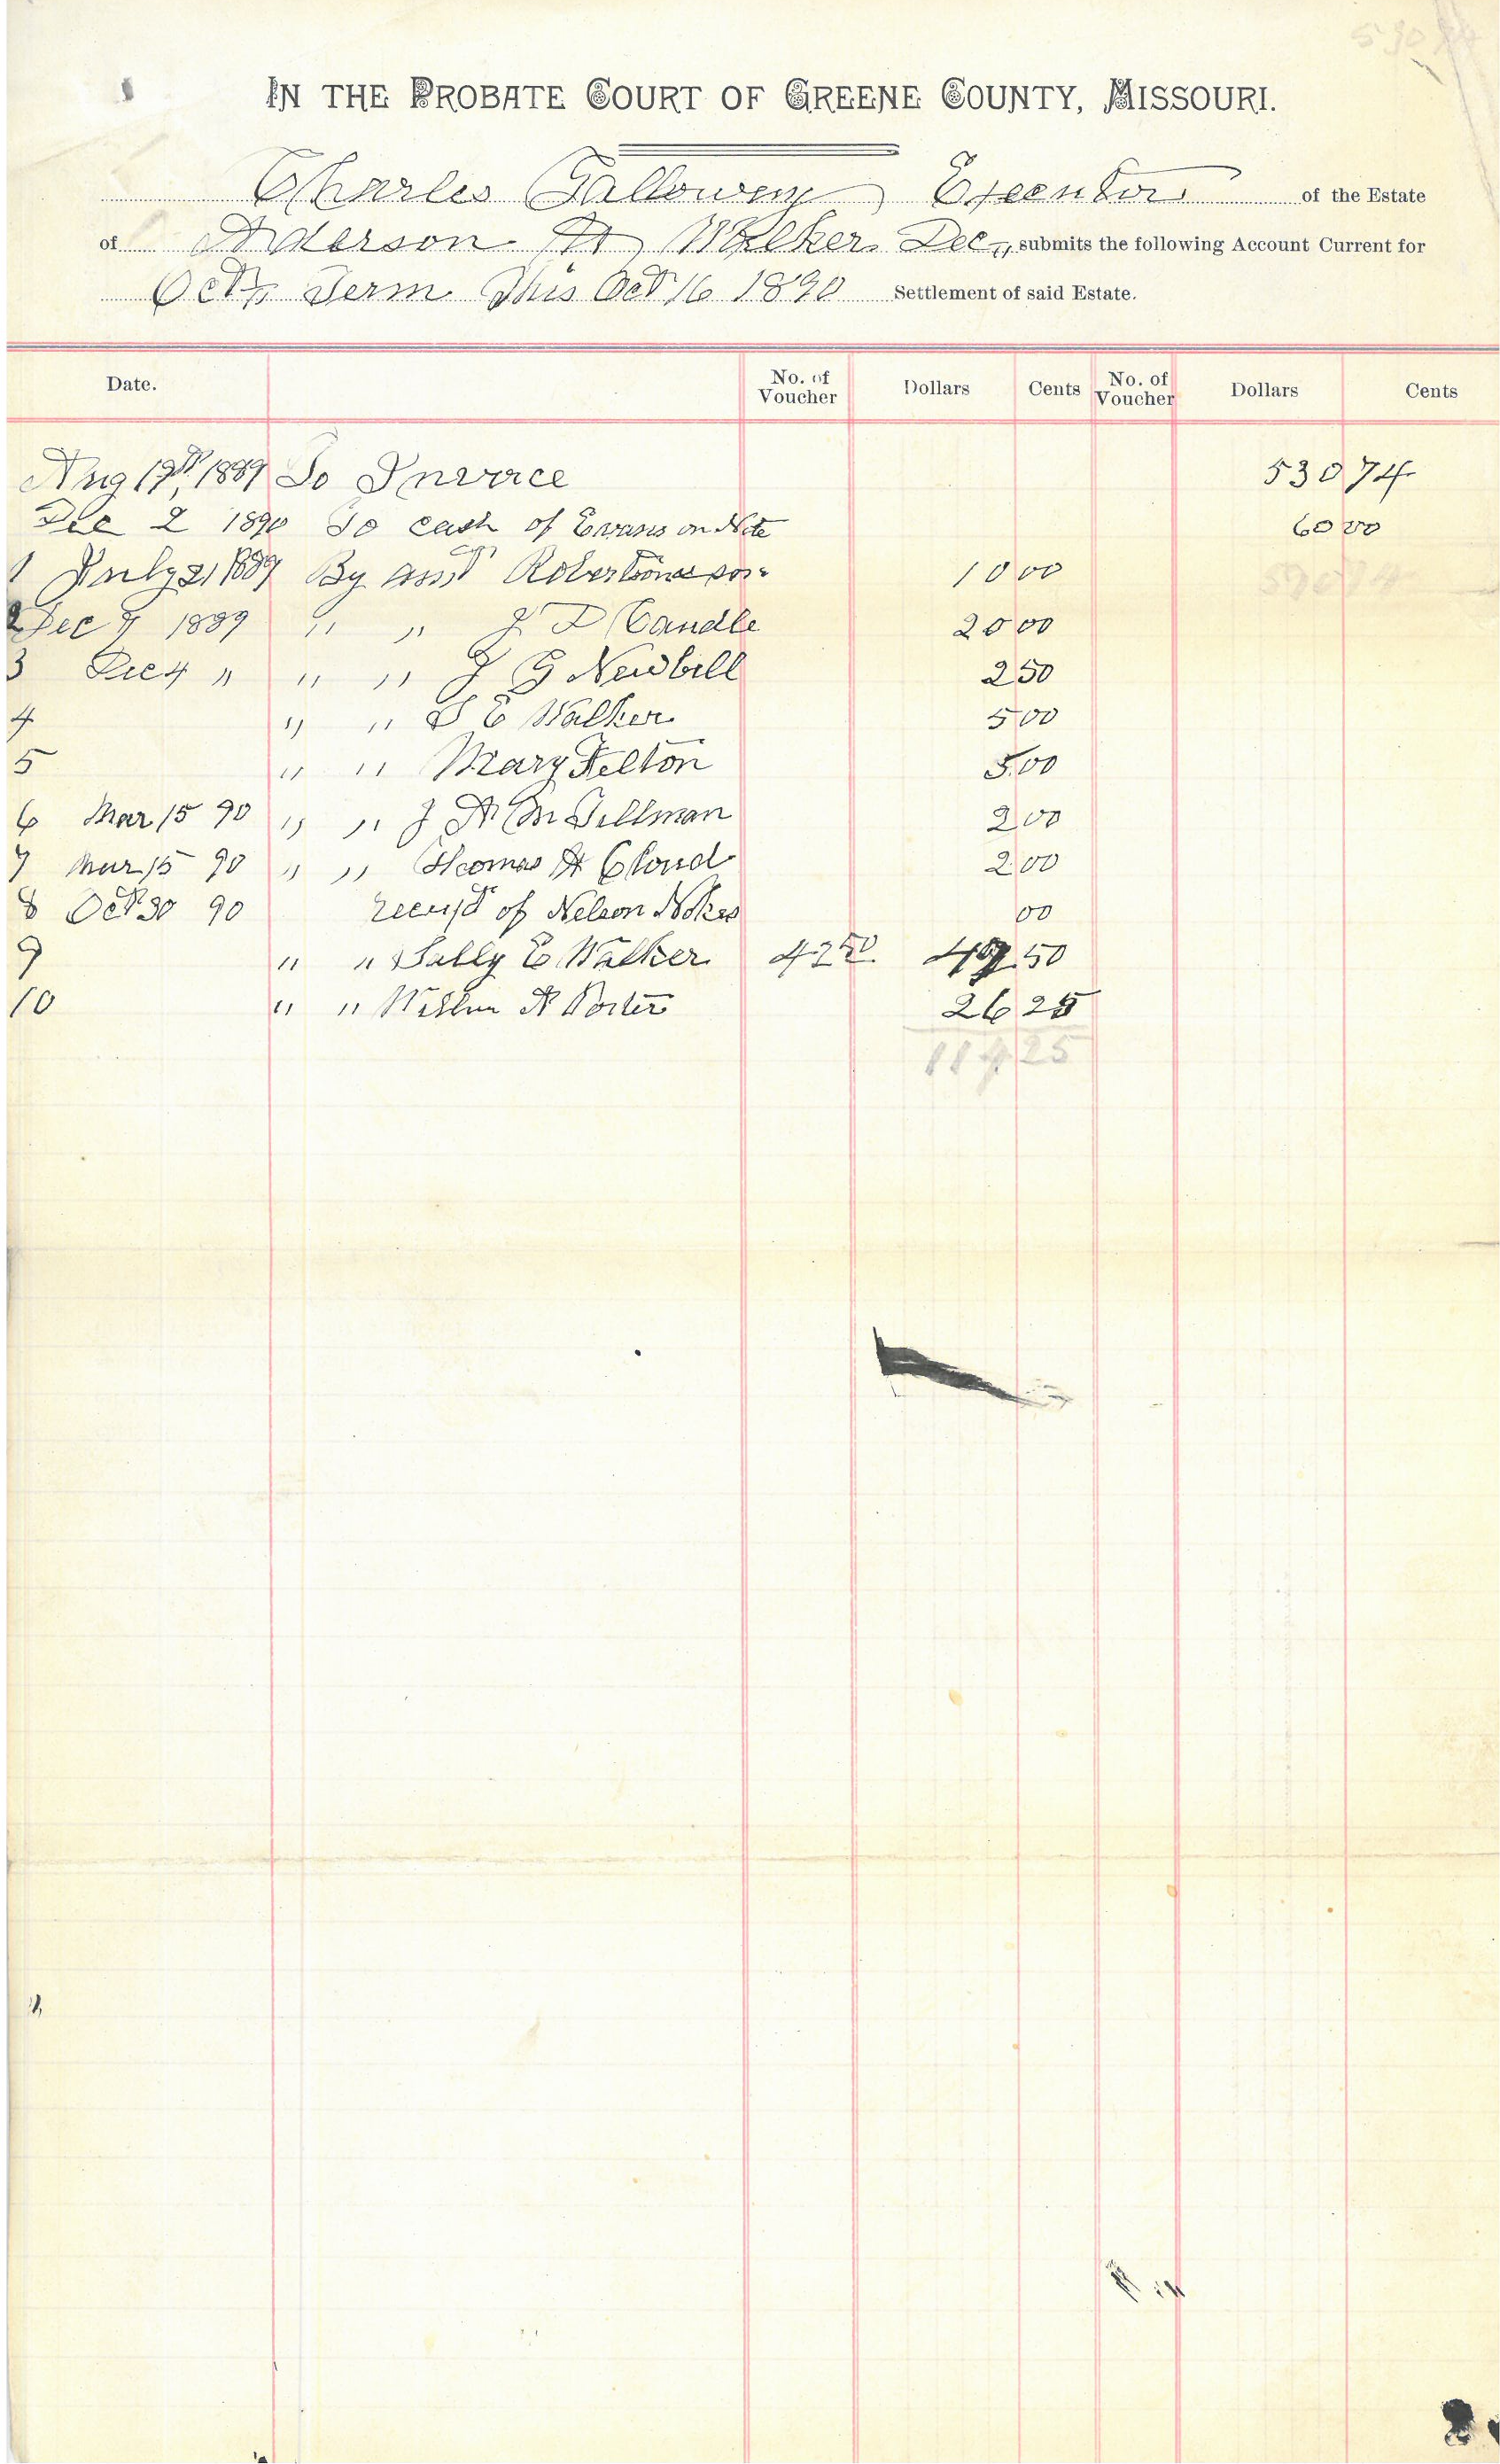 530 74
IN THE PROBATE COURT OF GREENE COUNTY, MISSOURI.
Charles Galloway Executor of the Estate
of Anderson A Walker Dec,, submits the following Account Current for
Oct,, Term This Oct 16 1890 Settlement of said Estate.
Date. No. of Voucher Dollars Cents No. of Voucher Dollars Cents
Aug 19th, 1889 To Invoice 530 74
Dec 2 1890 To cash of Evans on Note 60 00
1 July 21 1889 By amt 10 00
2 Dec 7 1889 " " J D Caudle 20 00
3 Dec 4 " " " J G Newbill 2 50
4 " " S E Walker 5 00
5 " " Mary Felton 5.00
6 Mar 15 90 " " J A M Tillman 2 00
7 Mar 15 90 " " Thomas H Cloud 2 00
8 Oct 30 90 receipt of Nelson Nokes 00
9 " " Sally E Walker 42 50 50
10 " " A Porter 26 25
25